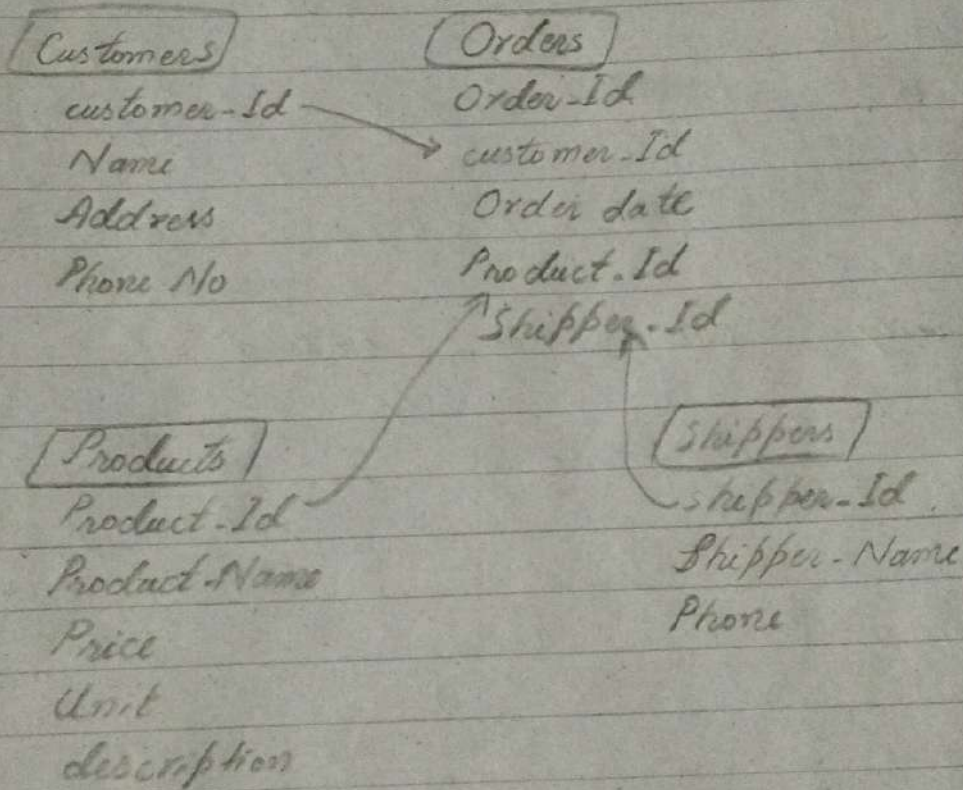 Customers
customer-Id
Name
Address
Phone No
Orders
Order-Id
customer-Id
Order date
Product-Id
Shipper-Id
Products
Product-Id
Product-Name
Price
Unit
description
Shippers
shipper-Id
Shipper-Name
Phone